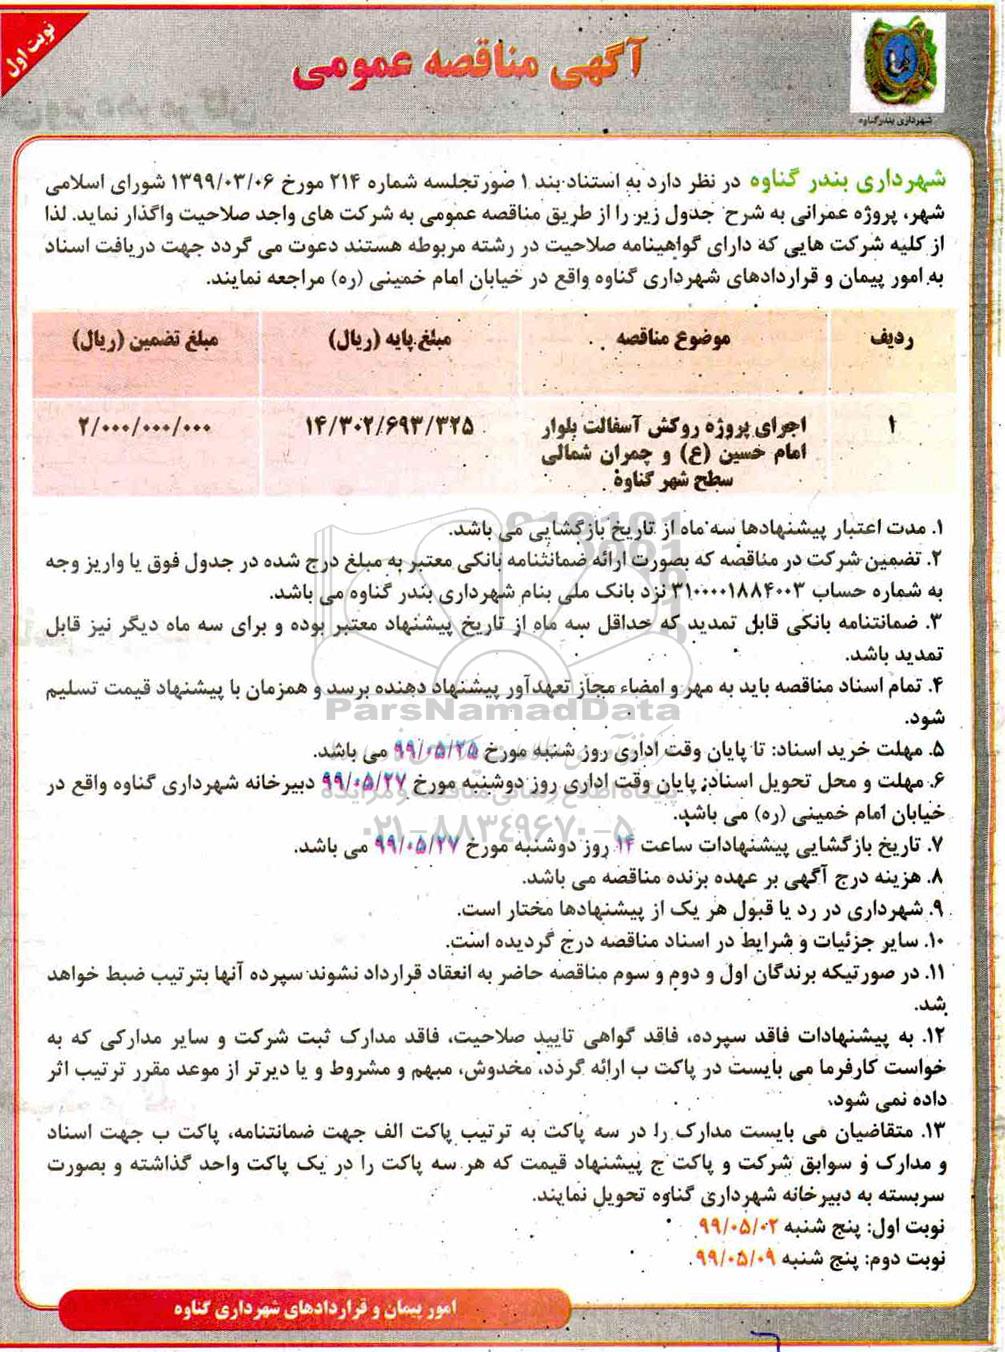 نوبت اول
آگهی مناقصه عمومی
شهرداری بندرگناوه
شهرداری بندر گناوه در نظر دارد به استناد بند ۱ صورتجلسه شماره ۲۱۴ مورخ ۱۳۹۹/۰۳/۰۶ شورای اسلامی
شهر، پروژه عمرانی به شرح جدول زیر را از طریق مناقصه عمومی به شرکت های واجد صلاحیت واگذار نماید. لذا
از کلیه شرکت هایی که دارای گواهینامه صلاحیت در رشته مربوطه هستند دعوت می گردد جهت دریافت اسناد
به امور پیمان و قراردادهای شهرداری گناوه واقع در خیابان امام خمینی (ره) مراجعه نمایند.
ردیف موضوع مناقصه مبلغ پایه (ریال) مبلغ تضمین (ریال)
۱ اجرای پروژه روکش آسفالت بلوار ۱۴/۳۰۲/۶۹۳/۳۲۵ ۲/۰۰۰/۰۰۰/۰۰۰
امام حسین (ع) و چمران شمالی
سطح شهر گناوه
۱. مدت اعتبار پیشنهادها سه ماه از تاریخ بازگشایی می باشد.
۲. تضمین شرکت در مناقصه که بصورت ارائه ضمانتنامه بانکی معتبر به مبلغ درج شده در جدول فوق یا واریز وجه
به شماره حساب ۳۱۰۰۰۰۱۸۸۴۰۰۳ نزد بانک ملی بنام شهرداری بندر گناوه می باشد.
۳. ضمانتنامه بانکی قابل تمدید که حداقل سه ماه از تاریخ پیشنهاد معتبر بوده و برای سه ماه دیگر نیز قابل
تمدید باشد.
۴. تمام اسناد مناقصه باید به مهر و امضاء مجاز تعهدآور پیشنهاد دهنده برسد و همزمان با پیشنهاد قیمت تسلیم
شود.
ParsNamadData
۵. مهلت خرید اسناد: تا پایان وقت اداری روز شنبه مورخ ۹۹/۰۵/۲۵ می باشد.
۶. مهلت و محل تحویل اسناد: پایان وقت اداری روز دوشنبه مورخ ۹۹/۰۵/۲۷ دبیرخانه شهرداری گناوه واقع در
خیابان امام خمینی (ره) می باشد.
۰۲۱-۸۸۳۴۹۶۷۰-۵
۷. تاریخ بازگشایی پیشنهادات ساعت ۱۴ روز دوشنبه مورخ ۹۹/۰۵/۲۷ می باشد.
۸. هزینه درج آگهی بر عهده برنده مناقصه می باشد.
۹. شهرداری در رد یا قبول هر یک از پیشنهادها مختار است.
۱۰. سایر جزئیات و شرایط در اسناد مناقصه درج گردیده است.
۱۱. در صورتیکه برندگان اول و دوم و سوم مناقصه حاضر به انعقاد قرارداد نشوند سپرده آنها بترتیب ضبط خواهد
شد.
۱۲. به پیشنهادات فاقد سپرده، فاقد گواهی تایید صلاحیت، فاقد مدارک ثبت شرکت و سایر مدارکی که به
خواست کارفرما می بایست در پاکت ب ارائه گردد، مخدوش، مبهم و مشروط و یا دیرتر از موعد مقرر ترتیب اثر
داده نمی شود.
۱۳. متقاضیان می بایست مدارک را در سه پاکت به ترتیب پاکت الف جهت ضمانتنامه، پاکت ب جهت اسناد
و مدارک و سوابق شرکت و پاکت ج پیشنهاد قیمت که هر سه پاکت را در یک پاکت واحد گذاشته و بصورت
سربسته به دبیرخانه شهرداری گناوه تحویل نمایند.
نوبت اول: پنج شنبه ۹۹/۰۵/۰۲
نوبت دوم: پنج شنبه ۹۹/۰۵/۰۹
امور پیمان و قراردادهای شهرداری گناوه